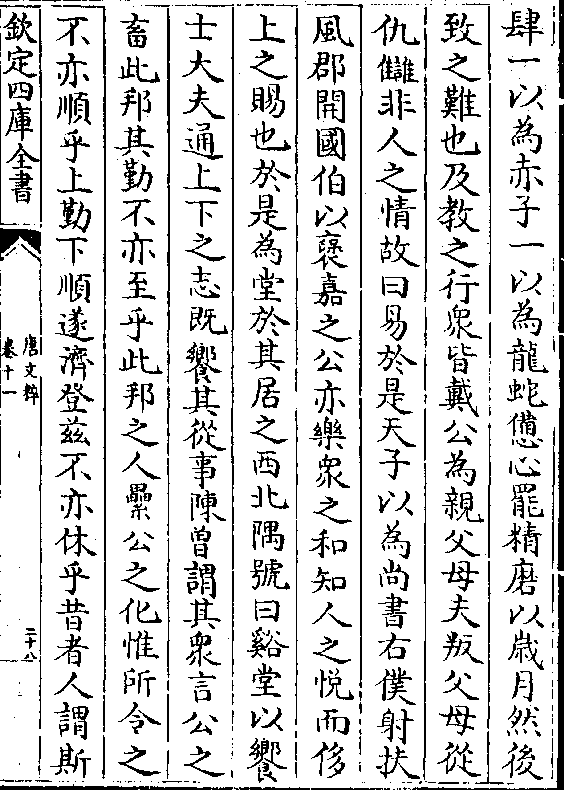 肆一以為赤子一以為龍蛇憊心罷精磨以歲月然後
致之難也及教之行衆皆戴公為親父母夫叛父母從
仇讎非人之情故曰易於是天子以為尚書右僕射扶
風郡開國伯以襃嘉之公亦樂衆之和知人之悦而侈
上之賜也於是為堂於其居之西北隅號曰谿堂以饗
士大夫通上下之志既饗其從事陳曾謂其衆言公之
畜此邦其勤不亦至乎此邦之人纍公之化惟所令之
不亦順乎上勤下順遂濟登兹不亦休乎昔者人謂斯
欽定四庫全書
唐文粹
卷十一
二十八